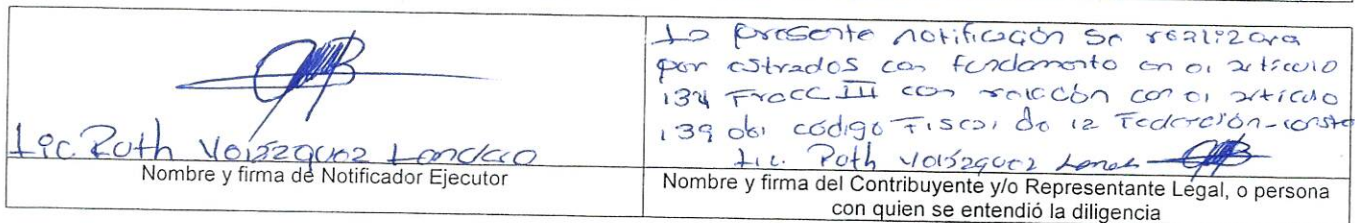 Lic. Ruth Velázquez Landero
Nombre y firma de Notificador Ejecutor
La presente notificación se realizara
por estrados con fundamento en el artículo
134 Fracc III con relación con el artículo
139 del código Fiscal de la Federación-conste
Lic. Ruth Velázquez
Nombre y firma del Contribuyente y/o Representante Legal, o persona
con quien se entendió la diligencia